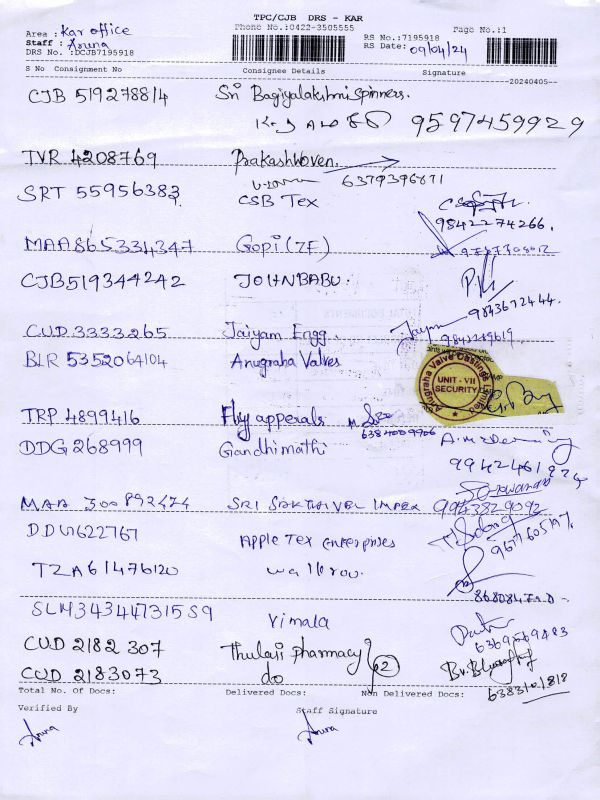 TPC/CJB DRS - KAR
Phone No.:0422-3505555
Area : Kar office
Staff : Aruna
DRS No. :DCJB7195918
RS No.:7195918
RS Date: 09/04/24
Page No.:1
S No Consignment No Consignee Details Signature
20240405
CJB 519278814 Sri Bagiyalakshmi Spinners.
9597459929
TVR 4208769 Prakashwoven.
6379396871
SRT 55956383 CSB Tex
9842274266.
MAA865334347 Gopi (ZF)
CJB519344242 JOHNBABU.
9843672444.
CUD 3333265 Jaiyam Engg.
Jaiyam 9842249619
BLR 5352064104 Anugraha Valves
Anugraha Valve Castings Limited
UNIT - VII
SECURITY
TRP 4899416 Fly apperals
6384009906
DDG 268999 Gandhimathi
9942461224
MAA 300892474 SRI SAKTHIVEL IMPEX 9943829092
DDG622767 APPLE TEX enterprises
TZA61476120
SLM34344731559 Vimala
CUD 2182307 Thulasi Pharmacy
6369569483
CUD 2183073 do 2
6383101818
Total No. Of Docs: Delivered Docs: Non Delivered Docs:
Verified By Staff Signature
Aruna Aruna